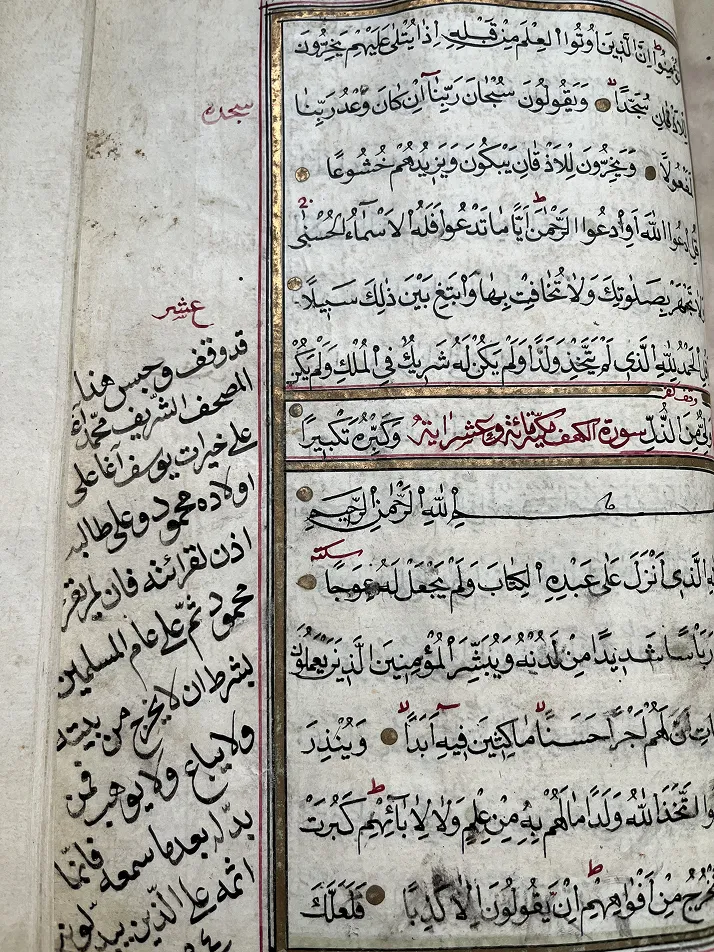 تُؤْمِنُوا اِنَّ الَّذ۪ينَ اُوتُوا الْعِلْمَ مِنْ قَبْلِه۪ٓ اِذَا يُتْلٰى عَلَيْهِمْ يَخِرُّونَ
لِلْاَذْقَانِ سُجَّدًا وَيَقُولُونَ سُبْحَانَ رَبِّنَٓا اِنْ كَانَ وَعْدُ رَبِّنَا
لَمَفْعُولًا وَيَخِرُّونَ لِلْاَذْقَانِ يَبْكُونَ وَيَز۪يدُهُمْ خُشُوعًا
قُلِ ادْعُوا اللّٰهَ اَوِ ادْعُوا الرَّحْمٰنَ اَيًّا مَا تَدْعُوا فَلَهُ الْاَسْمَٓاءُ الْحُسْنٰى
وَلَا تَجْهَرْ بِصَلٰوتِكَ وَلَا تُخَافِتْ بِهَا وَابْتَغِ بَيْنَ ذٰلِكَ سَب۪يلًا
وَقُلِ الْحَمْدُ لِلّٰهِ الَّذ۪ى لَمْ يَتَّخِذْ وَلَدًا وَلَمْ يَكُنْ لَهُ شَر۪يكٌ فِى الْمُلْكِ وَلَمْ يَكُنْ
وَلِىٌّ مِنَ الذُّلِّ سورة الكهف مكية مائة وعشر اية وَكَبِّرْهُ تَكْب۪يرًا
بِسْمِ اللّٰهِ الرَّحْمٰنِ الرَّح۪يمِ
الَّذ۪ٓى اَنْزَلَ عَلٰى عَبْدِهِ الْكِتَابَ وَلَمْ يَجْعَلْ لَهُ عِوَجًا
سكته
بَاْسًا شَد۪يدًا مِنْ لَدُنْهُ وَيُبَشِّرَ الْمُؤْمِن۪ينَ الَّذ۪ينَ يَعْمَلُونَ
اَنَّ لَهُمْ اَجْرًا حَسَنًا مَاكِث۪ينَ ف۪يهِ اَبَدًا وَيُنْذِرَ
اتَّخَذَ اللّٰهُ وَلَدًا مَا لَهُمْ بِه۪ مِنْ عِلْمٍ وَلَا لِاٰبَٓائِهِمْ كَبُرَتْ
تَخْرُجُ مِنْ اَفْوَاهِهِمْ اِنْ يَقُولُونَ اِلَّا كَذِبًا فَلَعَلَّكَ
سجده
عشر
قد وقف وحبس هذا
المصحف الشريف محمد آغا
على خيرات يوسف آغا على
اولاده محمود وعلى طالبه
اذن لقرائته فان لم يقرأ
محمود ثم على عام المسلمين
بشرط ان لا يخرج من بيته
ولا يباع ولا يوهب فمن
بدله بعدما سمعه فانما
اثمه على الذين يبدلونه